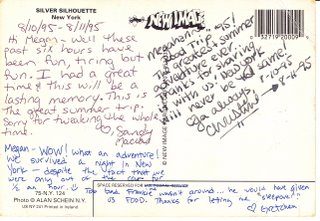 SILVER SILHOUETTE
New York
8/10/95 - 8/11/95
Hi Megan - Well these
past six hours have
been fun, tiring but
fun. I had a great
time & this will be a
lasting memory. This is
the great summer trip.
Sorry for tweaking the whole
time.
♡ Sandy
NEW IMAGE
8-10-95
8-11-95
summer
adventure ever.
thanks for sharing
it with us. New York
will never be the same!
always,
Megan - WOW! What an adventure!
We survived a night in New
York - despite the fact that we
were only out of the car for
½ an hour. Too bad Frankie wasn't around... he would have given
us FOOD. Thanks for letting me "sleepover"!
♡ Gretchen
75 N.Y. 124
Photo © ALAN SCHEIN N.Y.
UX NY 241 Printed in Ireland
© NEW IMAGE
SPACE RESERVED FOR
9 52719 20009